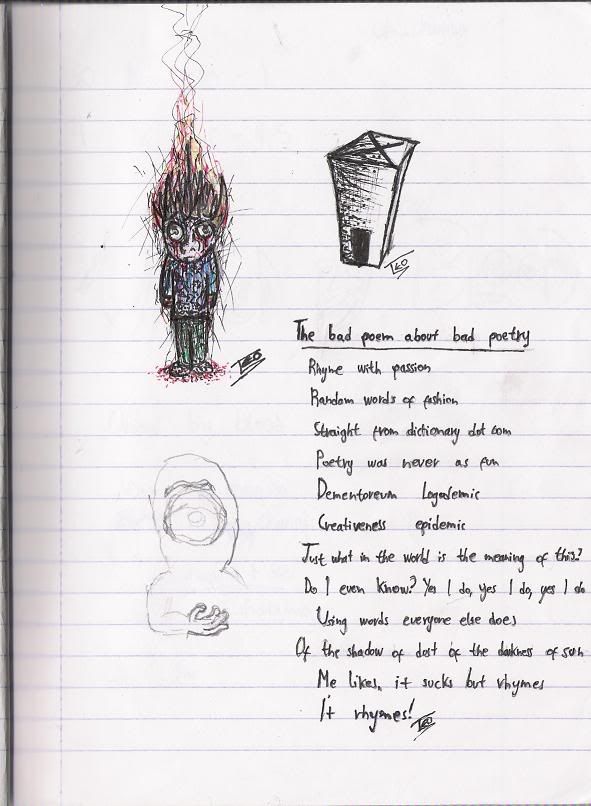 TEO
TEO
The bad poem about bad poetry
Rhyme with passion
Random words of fashion
Straight from dictionary dot com
Poetry was never as fun
Dementoreum Logodemic
Creativeness epidemic
Just what in the world is the meaning of this?
Do I even know? Yes I do, yes I do, yes I do
Using words everyone else does
Of the shadow of dost of the darkness of sun
Me likes, it sucks but rhymes
It rhymes!
TEO